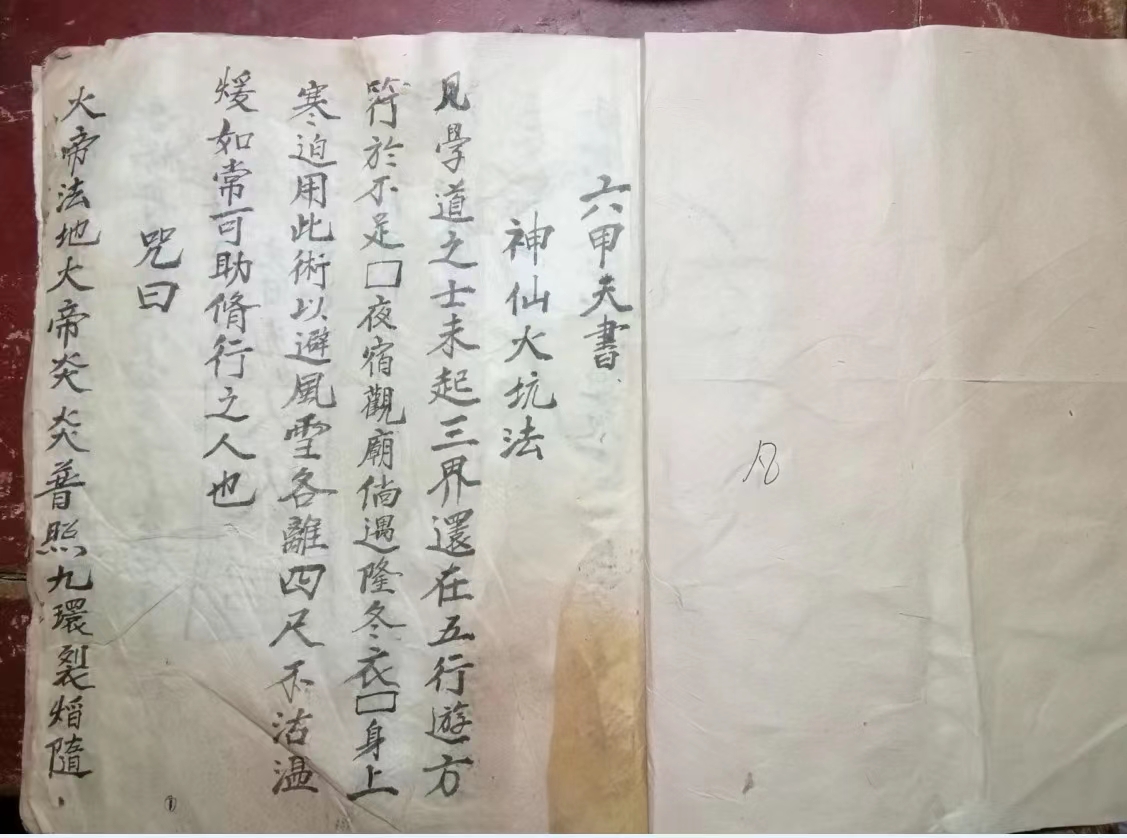 凡
六甲天書
神仙火坑法
見學道之士未起三界還在五行遊方
符於不足□夜宿觀廟倘遇隆冬衣□身上
寒迫用此術以避風雪各離四尺不沾溫
煖如常可助脩行之人也
咒曰
火帝法地大帝炎炎普照九環裂焰隨
①